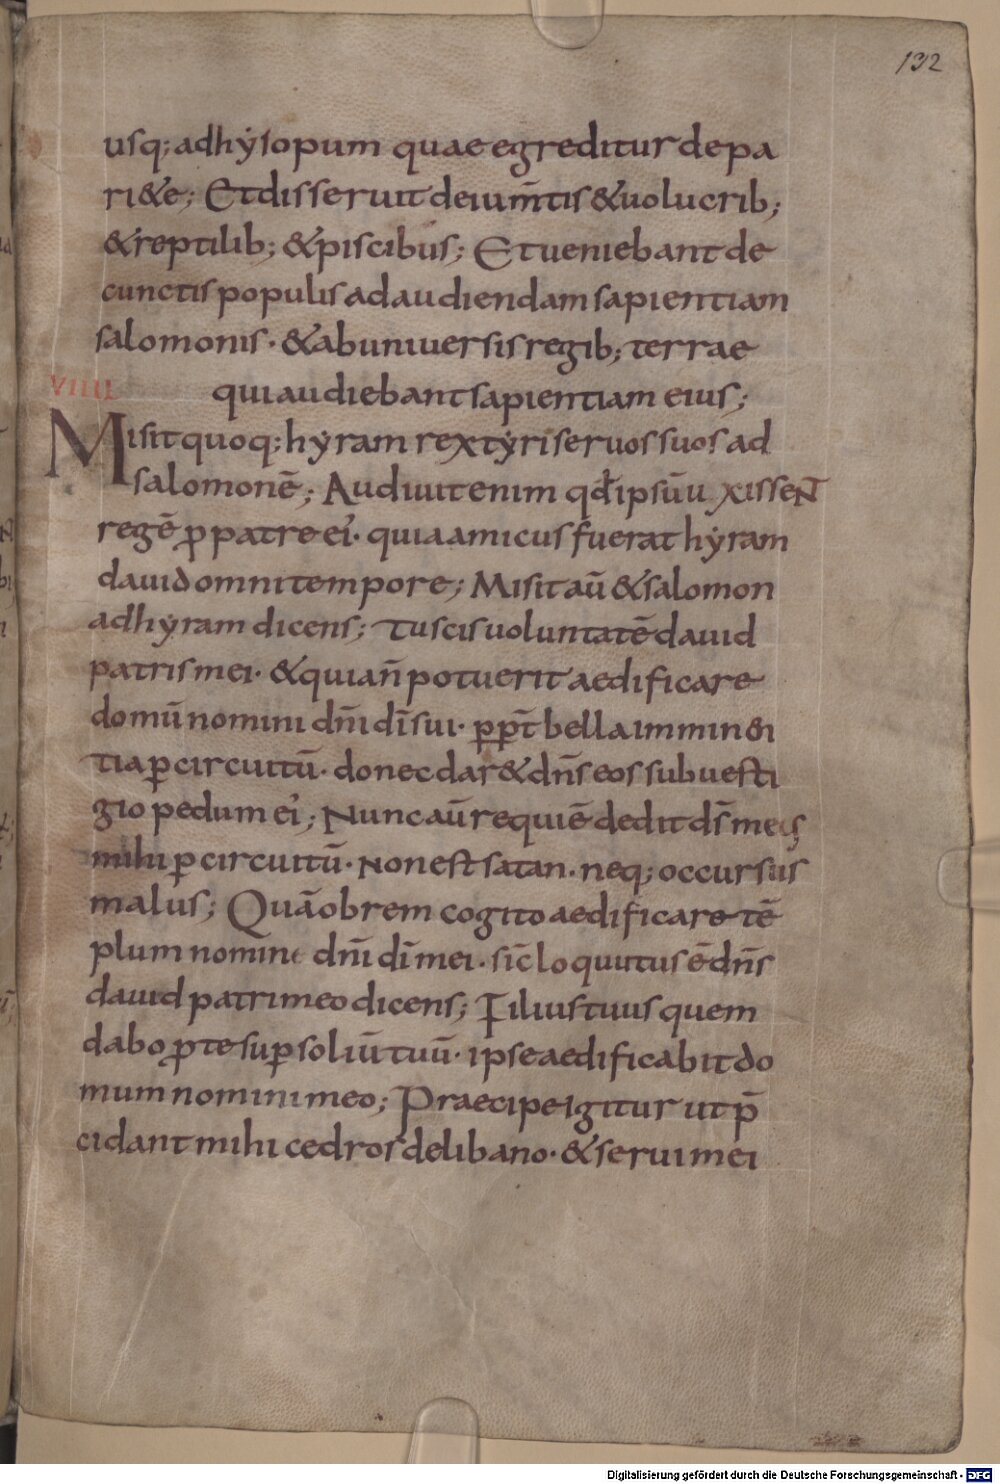 132
usq; adhẏsopum quae egreditur depa
ri&e; Et disseruit deium̄tis &uolucrib;
&reptilib; &piscibus; Et ueniebant de
cunctis populis ad audiendam sapientiam
salomonis· &ab uniuersis regib; terrae
VIIII
qui audiebant sapientiam eius;
Misit quoq; hẏram rex tẏri seruos suos ad
salomonē; Audiuit enim qđ ipsū u xissent
regē ꝓ patre ei᾽· quia amicus fuerat hẏram
dauid omni tempore; Misit aū &salomon
ad hẏram dicens; Tu scis uoluntatē dauid
patris mei· &quia n̄ potuerit aedificare
domū nomini dn̄i dī sui· ꝓpt̄ bella imminen
tia ꝑ circuitū· donec dar& dn̄s eos sub uesti
gio pedum ei᾽; Nunc aū requiē dedit ds̄ meus
mihi ꝑ circuitū· Non est satan· neq; occursus
malus; Quā obrem cogito aedificare tē
plum nomine dn̄i dī mei· sic̄ loquutus ē dn̄s
dauid patri meo dicens; Filius tuus quem
dabo ꝓ te suꝑ soliū tuū· ipse aedificabit do
mum nomini meo; Praecipe igitur ut p̄
cidant mihi cedros de libano· &serui mei
Digitalisierung gefördert durch die Deutsche Forschungsgemeinschaft - DFG